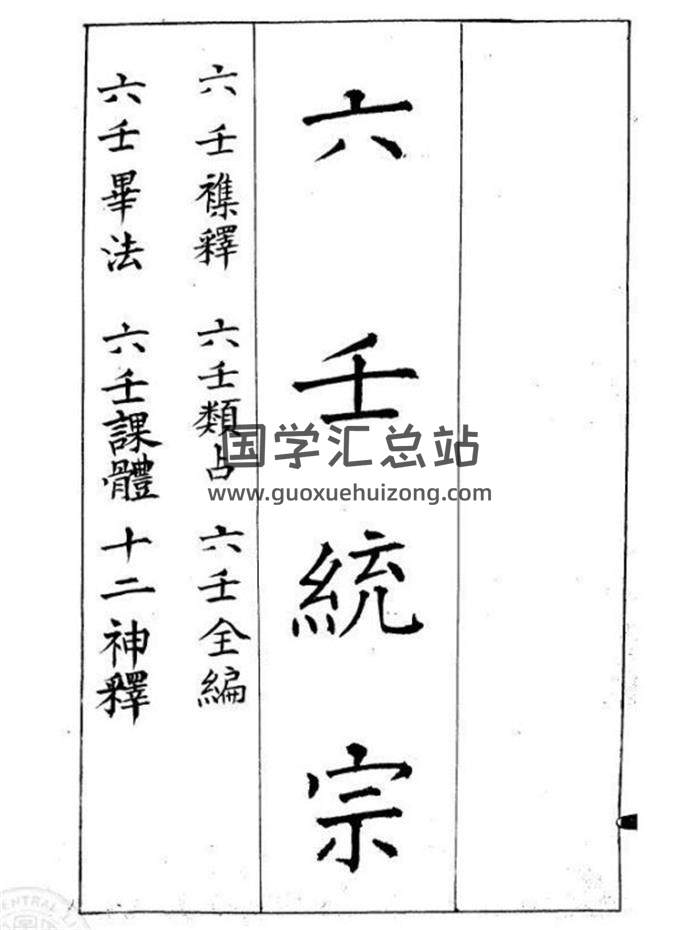 六壬統宗
六壬襍釋 六壬類占 六壬全編
六壬畢法 六壬課體 十二神釋
国学汇总站
www.guoxuehuizong.com
CENTRAL